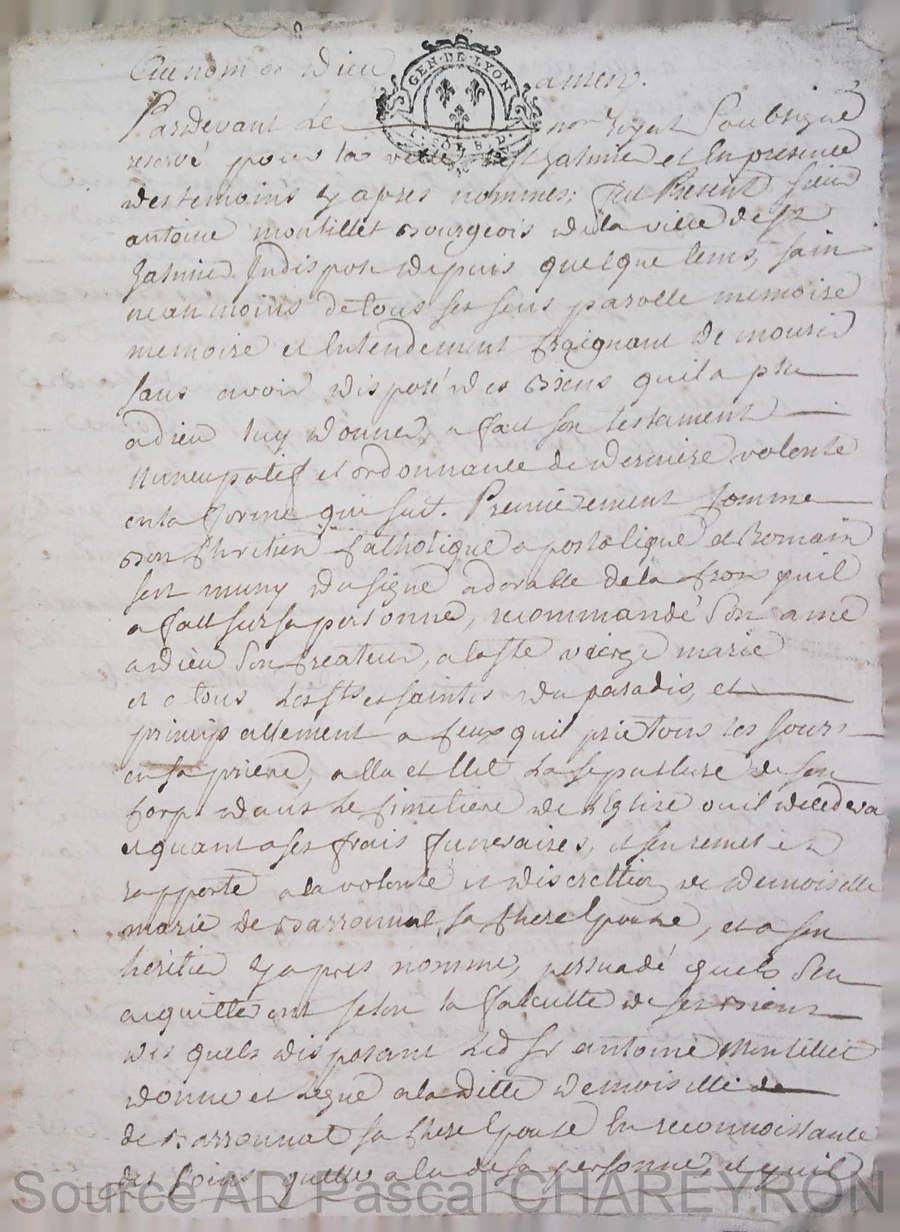 Au nom de Dieu amen.
GEN·DE·LYON
Pardevant Le no.re Royal Soubsigné
reservé pour la ville de st Galmier et En presence
des temoins y apres nommes; fut Present sieur
antoine montillet Bourgeois de la ville de st
Galmier Indispose depuis quelque tems, sain
neanmoins de tous ses sens parolle memoire
memoire et Entendement Craignant de mourir
sans avoir disposé des Biens quil a plu
a dieu luy donner, a fait son testament
Nuncupatif et ordonnance de derniere volonté
en la forme qui suit. Premierement Comme
Bon Chretien Catholique apostolique et Romain
sest muny du signe adorable de la Croix quil
a fait sur sa personne, recommandé Son ame
a dieu Son Createur, a la ste vierge marie
et a tous Les sts et saintes du paradis, et
principallement a Ceux quil prie tous les jours
en sa priere, a Elu et Elit La sepulture de son
Corps dans Le Cimetiere de l'Eglise ou il decedera
et quant a ses frais funeraires, il sen remet et
rapporte a la volonté et discrettion de demoiselle
marie de Barronnat, sa Chere Epouse, et a son
heritier y apres nommé, persuadé quels S'en
aquitteront selon la faculté de ses biens
des quels disposant Led Sr antoine Montillet
donne et legue a la ditte demoiselle de
de Barronnat sa Chere Epouse En reconnoissance
des soins quelle a Eu de sa personne, et quil
Source AD Pascal CHAREYRON